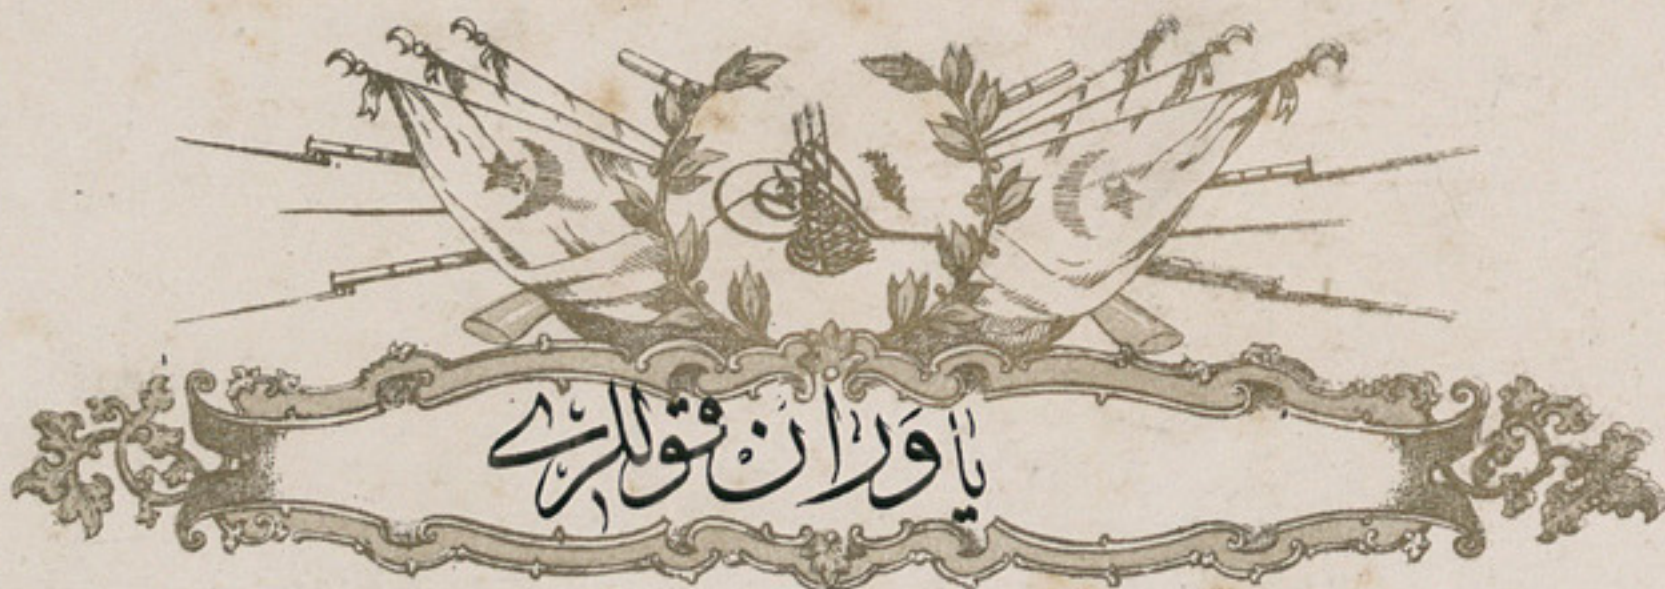 ياوران قوللرى